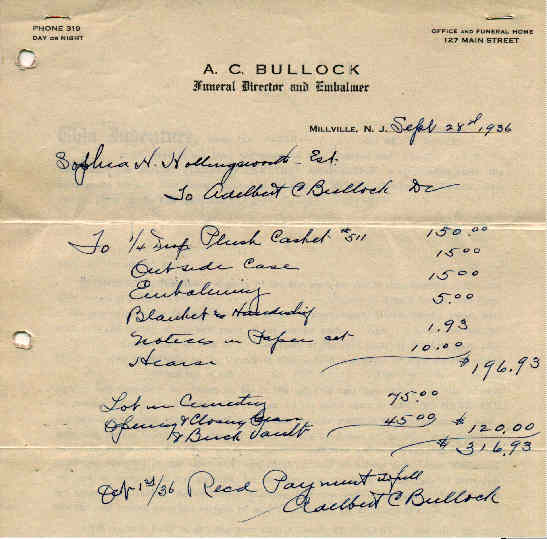 PHONE 319
DAY OR NIGHT
OFFICE AND FUNERAL HOME
127 MAIN STREET
A. C. BULLOCK
Funeral Director and Embalmer
MILLVILLE, N. J. Sept 28th 1936
Sophia N. Hollingsworth Est.
To Adelbert C Bullock Dr
To 1/4 Plush Casket #511 150.00
Outside Case 15.00
Embalming 15.00
Blanket & 5.00
Notices in Paper 1.93
Hearse 10.00 $196.93
Lot in Cemetery 75.00
Opening & Closing Grave 45.00 $120.00
& Brick Vault $316.93
Oct 1st/36 Recd Payment in full
Adelbert C Bullock